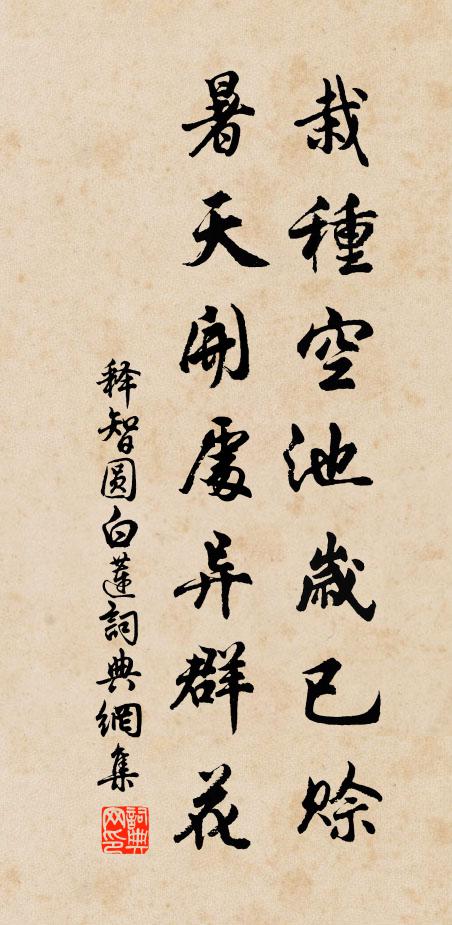 栽種空池歲已賒
暑天開處异群花
释智圆白蓮詞典網集
詞典网印